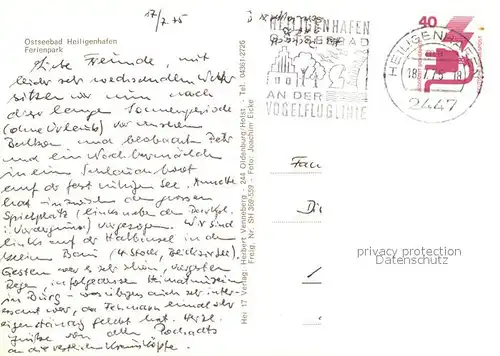 17/7 75
Ostseebad Heiligenhafen
Ferienpark
Liebe Freunde, mit
leider sehr wechselndem Wetter
sitzen wir nun nach
langer Sonnenperiode
(ohne Urlaub) vor unserem
Balkon und beobachten Petr
und ein Nachbarmädchen
in einem Schlauchboot
auf der fast ruhigen See. Annette
hat inzwischen den grossen
Spielplatz (links neben
Vordergrund) vorgezogen. Wir sind
links auf der Halbinsel in dem
Bau (4. Stock,
Gestern war es sehr schön, vorgestern
Regen, infolgedessen Heimatmuseum
in Burg - was übrigens auch sehr inter-
essant war, da Fehmarn einmal sehr
eigenständig gelebt hat. Herzl.
Grüsse von allen
an die restlichen
Hei 17 Verlag: Herbert Venneberg - 244 Oldenburg/Holst - Tel. 04361-2726
Freig. Nr. SH 369-539 - Foto: Joachim Eicke
HEILIGENHAFEN
OSTSEEBAD
AN DER
VOGELFLUGLINIE
HEILIGENHAFEN
18.7.75-18
2447
40
privacy protection
Datenschutz